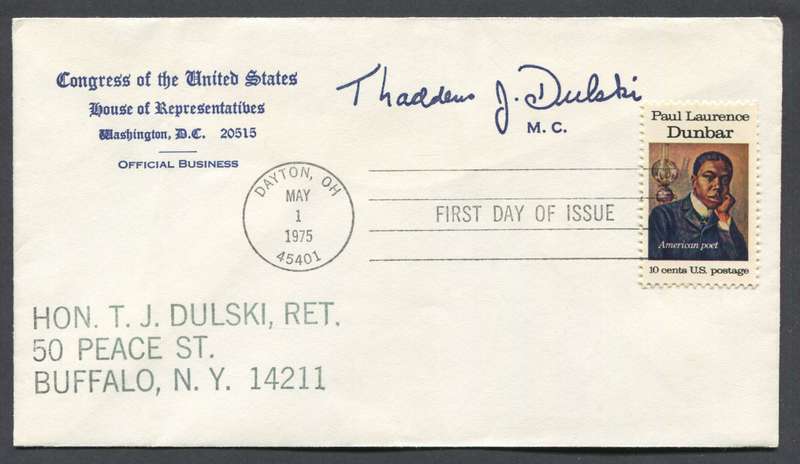 Congress of the United States
House of Representatives
Washington, D.C. 20515
OFFICIAL BUSINESS
Thaddeus J. Dulski
M. C.
Paul Laurence
Dunbar
American poet
10 cents U.S. postage
DAYTON, OH
MAY
1
1975
45401
FIRST DAY OF ISSUE
HON. T. J. DULSKI, RET.
50 PEACE ST.
BUFFALO, N. Y. 14211